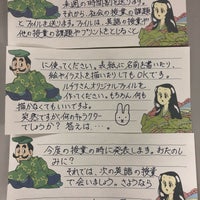 来週の時間割を送ります。
それから、社会の授業の課題
とファイルを送ります。ファイルは、英語の授業や
他の授業の課題やプリントをとじること
に使てください。表紙に名前を書いたり、
絵やイラストを描いたりしてもOKです。
オリジナルファイルを
作ってください。もちろん何も
描かなくてもいいですよ。
突然ですが、何のキャラクター
でしょうか？答えは….
今度の授業の時に発表します。おたのし
みに？
それでは、次の英語の授業
で会いましょう。さようなら